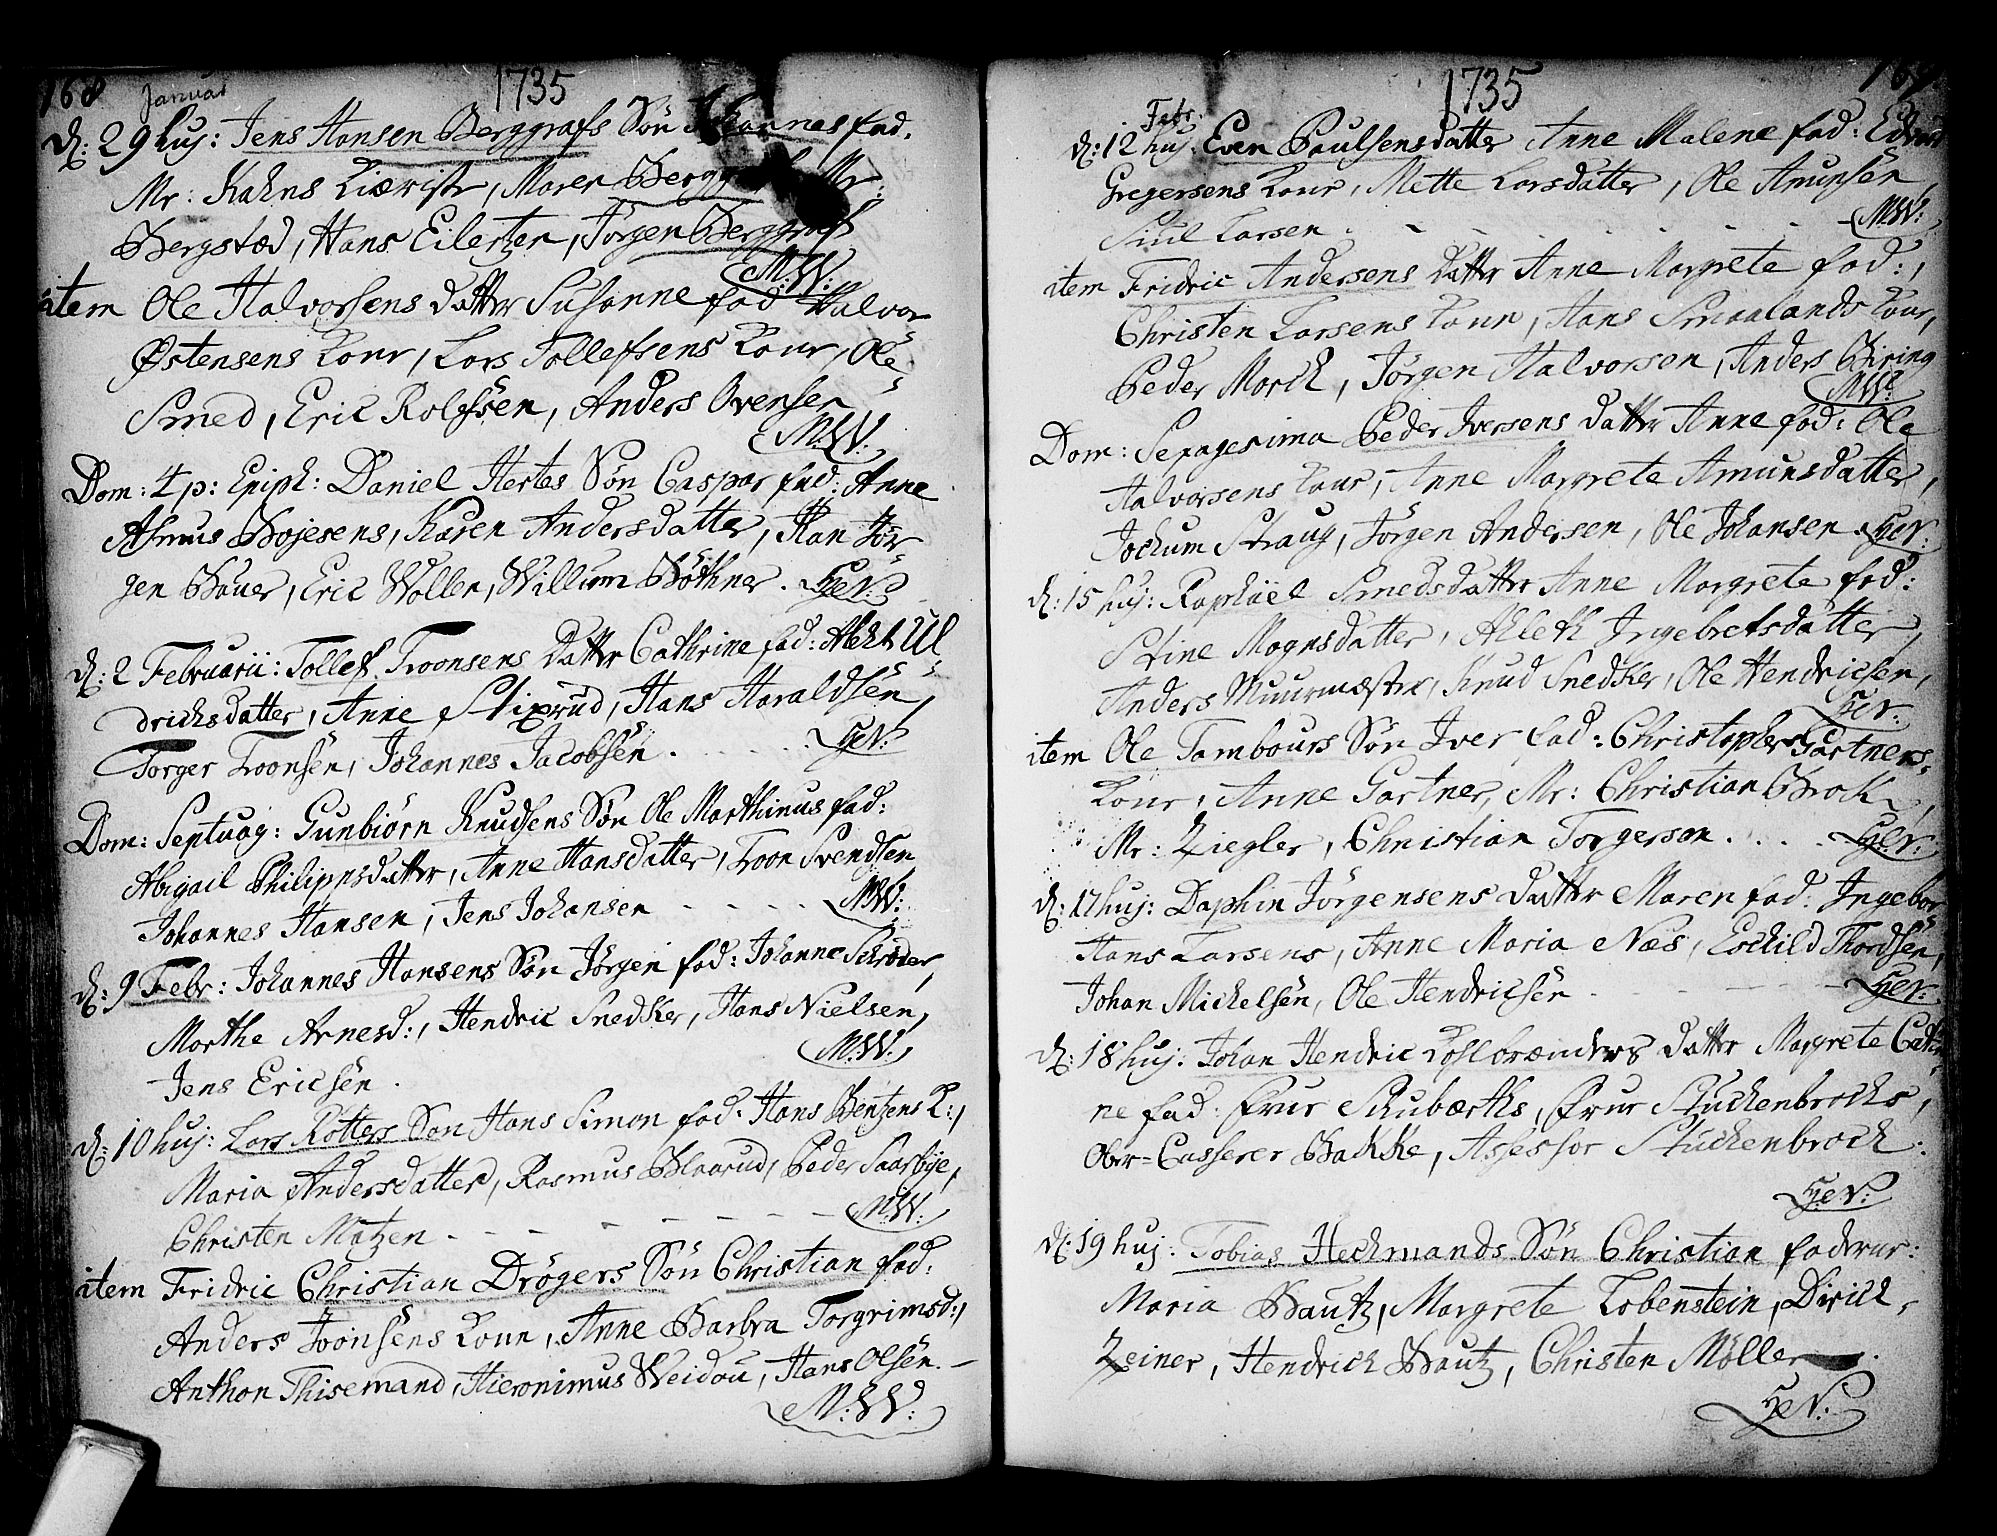 168 Januar 1735
d: 29 huj: Jens Hansen Berggrafs Søn Johannes fad.
Mr: Kahns Kiæriste, Maren Berggraf, Mr:
Bergstæd, Hans Eilertzen, Jørgen Berggraf
M.W:
item Ole Halvorsens Datter Susanne fad Halvor
Østensens Kone, Lars Tollefsens Kone, Ole
Smed, Eric Rolfsen, Anders Ovensen
M.W.
Dom: 4 p: Epiph: Daniel Hertes Søn Caspar fad: Anne
Asmus Bojesens, Karen Andersdatter, Han Jør-
gen Bauer, Eric Woller, Willum Bøthner. HeN:
d: 2 Februarii: Tollef Troonsens Datter Cathrine fad: Ul-
drichsdatter, Anne Stixrud, Hans Haraldsen,
Torger Troonsen, Johannes Jacobsen . . . . . HeN:
Dom: Septuag: Gunbiørn Knudsens Søn Ole Marthinus fad:
Abigail Philipsdatter, Anne Hansdatter, Troon Svendsen
Johannes Hansen, Jens Johansen - - - - M.W:
d: 9 Febr: Johannes Hansens Søn Jørgen fad: Johanne Schrøder,
Marthe Arnesd:, Hendric Snedker, Hans Nielsen,
Jens Ericsen. M.W.
d: 10 huj: Lars Rotters Søn Hans Simon fad. Hans Bentzens K:,
Maria Andersdatter, Rasmus Blaarud, Peder Saarbye,
Christen Matzen - - - - - - M.W.
item Fridric Christian Drøgers Søn Christian fad:
Anders Joonsens Kone, Anne Barbra Torgrimsd:,
Anthon Thisemand, Hieronimus Weidou, Hans Olsen. -
M:W:
1735 169.
Febr.
d: 12 huj. Even Paulsens datter Anne Malene fad:
Gregersens Kone, Mette Larsdatter, Ole Amunsen,
Siul Larsen . - - - - - - M.W:
item Fridric Andersens Datter Anne Margrete fad:,
Christen Larsens Kone, Hans Smaalands Kone,
Peder Morck, Jørgen Halvorsen, Anders Biring
M.W:
Dom: Sexagesima Peder Iversens Datter Anne fad: Ole
Halvorsens Kone, Anne Margrete Amunsdatter,
Jochum Straug, Jørgen Andersen, Ole Johansen. HeN:
d: 15 huj: Raphael Smeds datter Anne Margrete fad:
Stine Mognsdatter, Ahleth Ingebretsdatter,
Anders Muurmæster, Knud Snedker, Ole Hendricsen,
HeN:
item Ole Tambours Søn Iver fad: Christopher Gartners
Kone, Anne Gartner, Mr: Christian Brok,
Mr: Ziegler, Christian Torgersen. . . . HeN:
d: 17 huj: Daphin Jørgensens Datter Maren fad: Ingebor
Hans Larsens, Anne Maria Næs, Eschild Thordsen,
Johan Mickelsen, Ole Hendricsen - - - - - HeN:
d: 18 huj: Johan Hendric Kohlbrænders Datter Margrete Cathri-
ne fad: Frue Schubarths, Frue Stuckenbrocks,
Ober-Casserer Bakke, Assessor Stuckenbrock:
HeN:
d: 19 huj: Tobias Heckmands Søn Christian faderne:
Maria Bautz, Margrete Lobenstein, Dirick,
Zeiner, Hendrich Bautz, Christen Møller.
HeN: